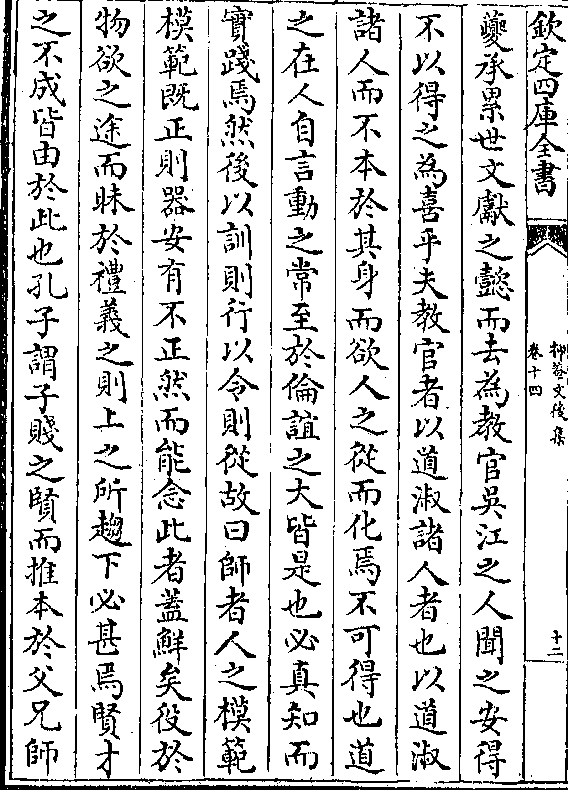 欽定四庫全書
抑菴文後集
卷十四
十二
夔承累世文獻之懿而去為教官吳江之人聞之安得
不以得之為喜乎夫教官者以道淑諸人者也以道淑
諸人而不本於其身而欲人之從而化焉不可得也道
之在人自言動之常至於倫誼之大皆是也必真知而
實踐焉然後以訓則行以令則從故曰師者人之模範
模範既正則器安有不正然而能念此者蓋鮮矣役於
物欲之途而昧於禮義之則上之所趨下必甚焉賢才
之不成皆由於此也孔子謂子賤之賢而推本於父兄師